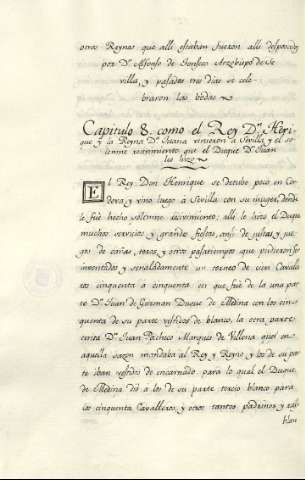 otros Reynos que alli estaban fueron alli desposados
por Dn. Alfonso de Fonseca Arzobispo de Se
villa, y pasados tres dias se cele
braron las bodas
Capitulo 8. como el Rey Dn. Henri
que y la Reyna Da. Juana vinieron a Sevilla y el so
lemne recivimiento que el Duque Dn. Juan
les hizo
El Rey Don Henrique se detubo poco en Cor
dova y vino luego a Sevilla con su muger, donde
le fue hecho solemne recivimiento; alli le hizo el Duque
muchos servicios y grandes fiestas, ansi de justas y jue
gos de cañas toros, y otros pasatiempos que pudieron ser
imventados y señaladamente un torneo de cien Cavalle
ros cinquenta a cinquenta en que fue de la una par
te Dn. Juan de Guzman Duque de Medina con los cin
quenta de su parte vestidos de blanco, la otra parte
Dn. Juan Pacheco Marques de Villena qual en
aquella sazon mandaba al Rey y Reyno y los de su par
te iban vestidos de encarnado para lo qual el Duque
de Medina dió a los de su parte tercio blanco para
los cinquenta Cavalleros, y otros tantos padrinos y
blan